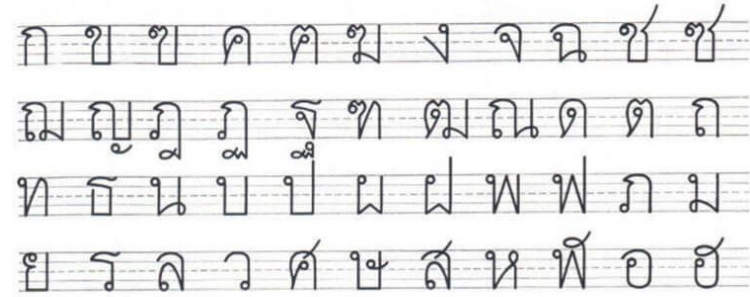 ก ข ฃ ค ฅ ฆ ง จ ฉ ช ซ
ฌ ญ ฎ ฏ ฐ ฑ ฒ ณ ด ต ถ
ท ธ น บ ป ผ ฝ พ ฟ ภ ม
ย ร ล ว ศ ษ ส ห ฬ อ ฮ